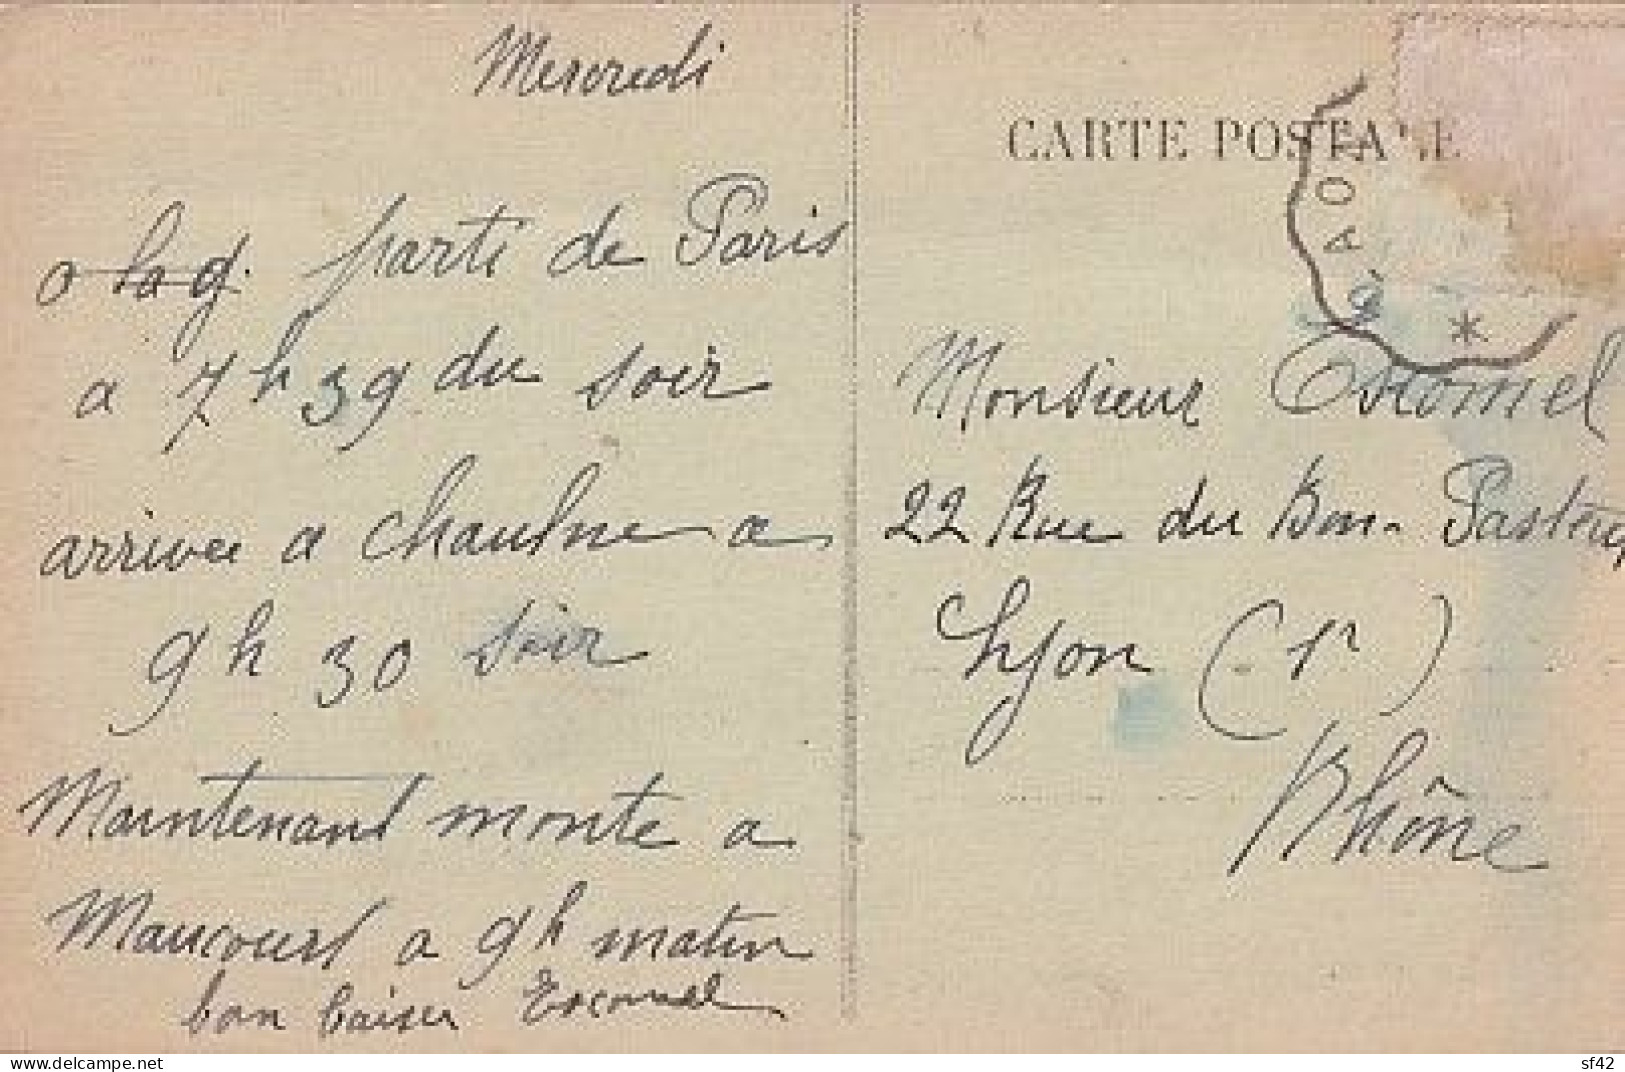 Mercredi
parti de Paris
a 7h39 du soir
arrivée a chaulne a
9h 30 soir
Maintenant monte a
Maucourt a 9h matin
bon baiser Escomel
CARTE POSTALE
AOUT
Monsieur Escomel
22 Rue du Bon-Pasteur
Lyon (1r)
Rhône
delcampe.net
sf42